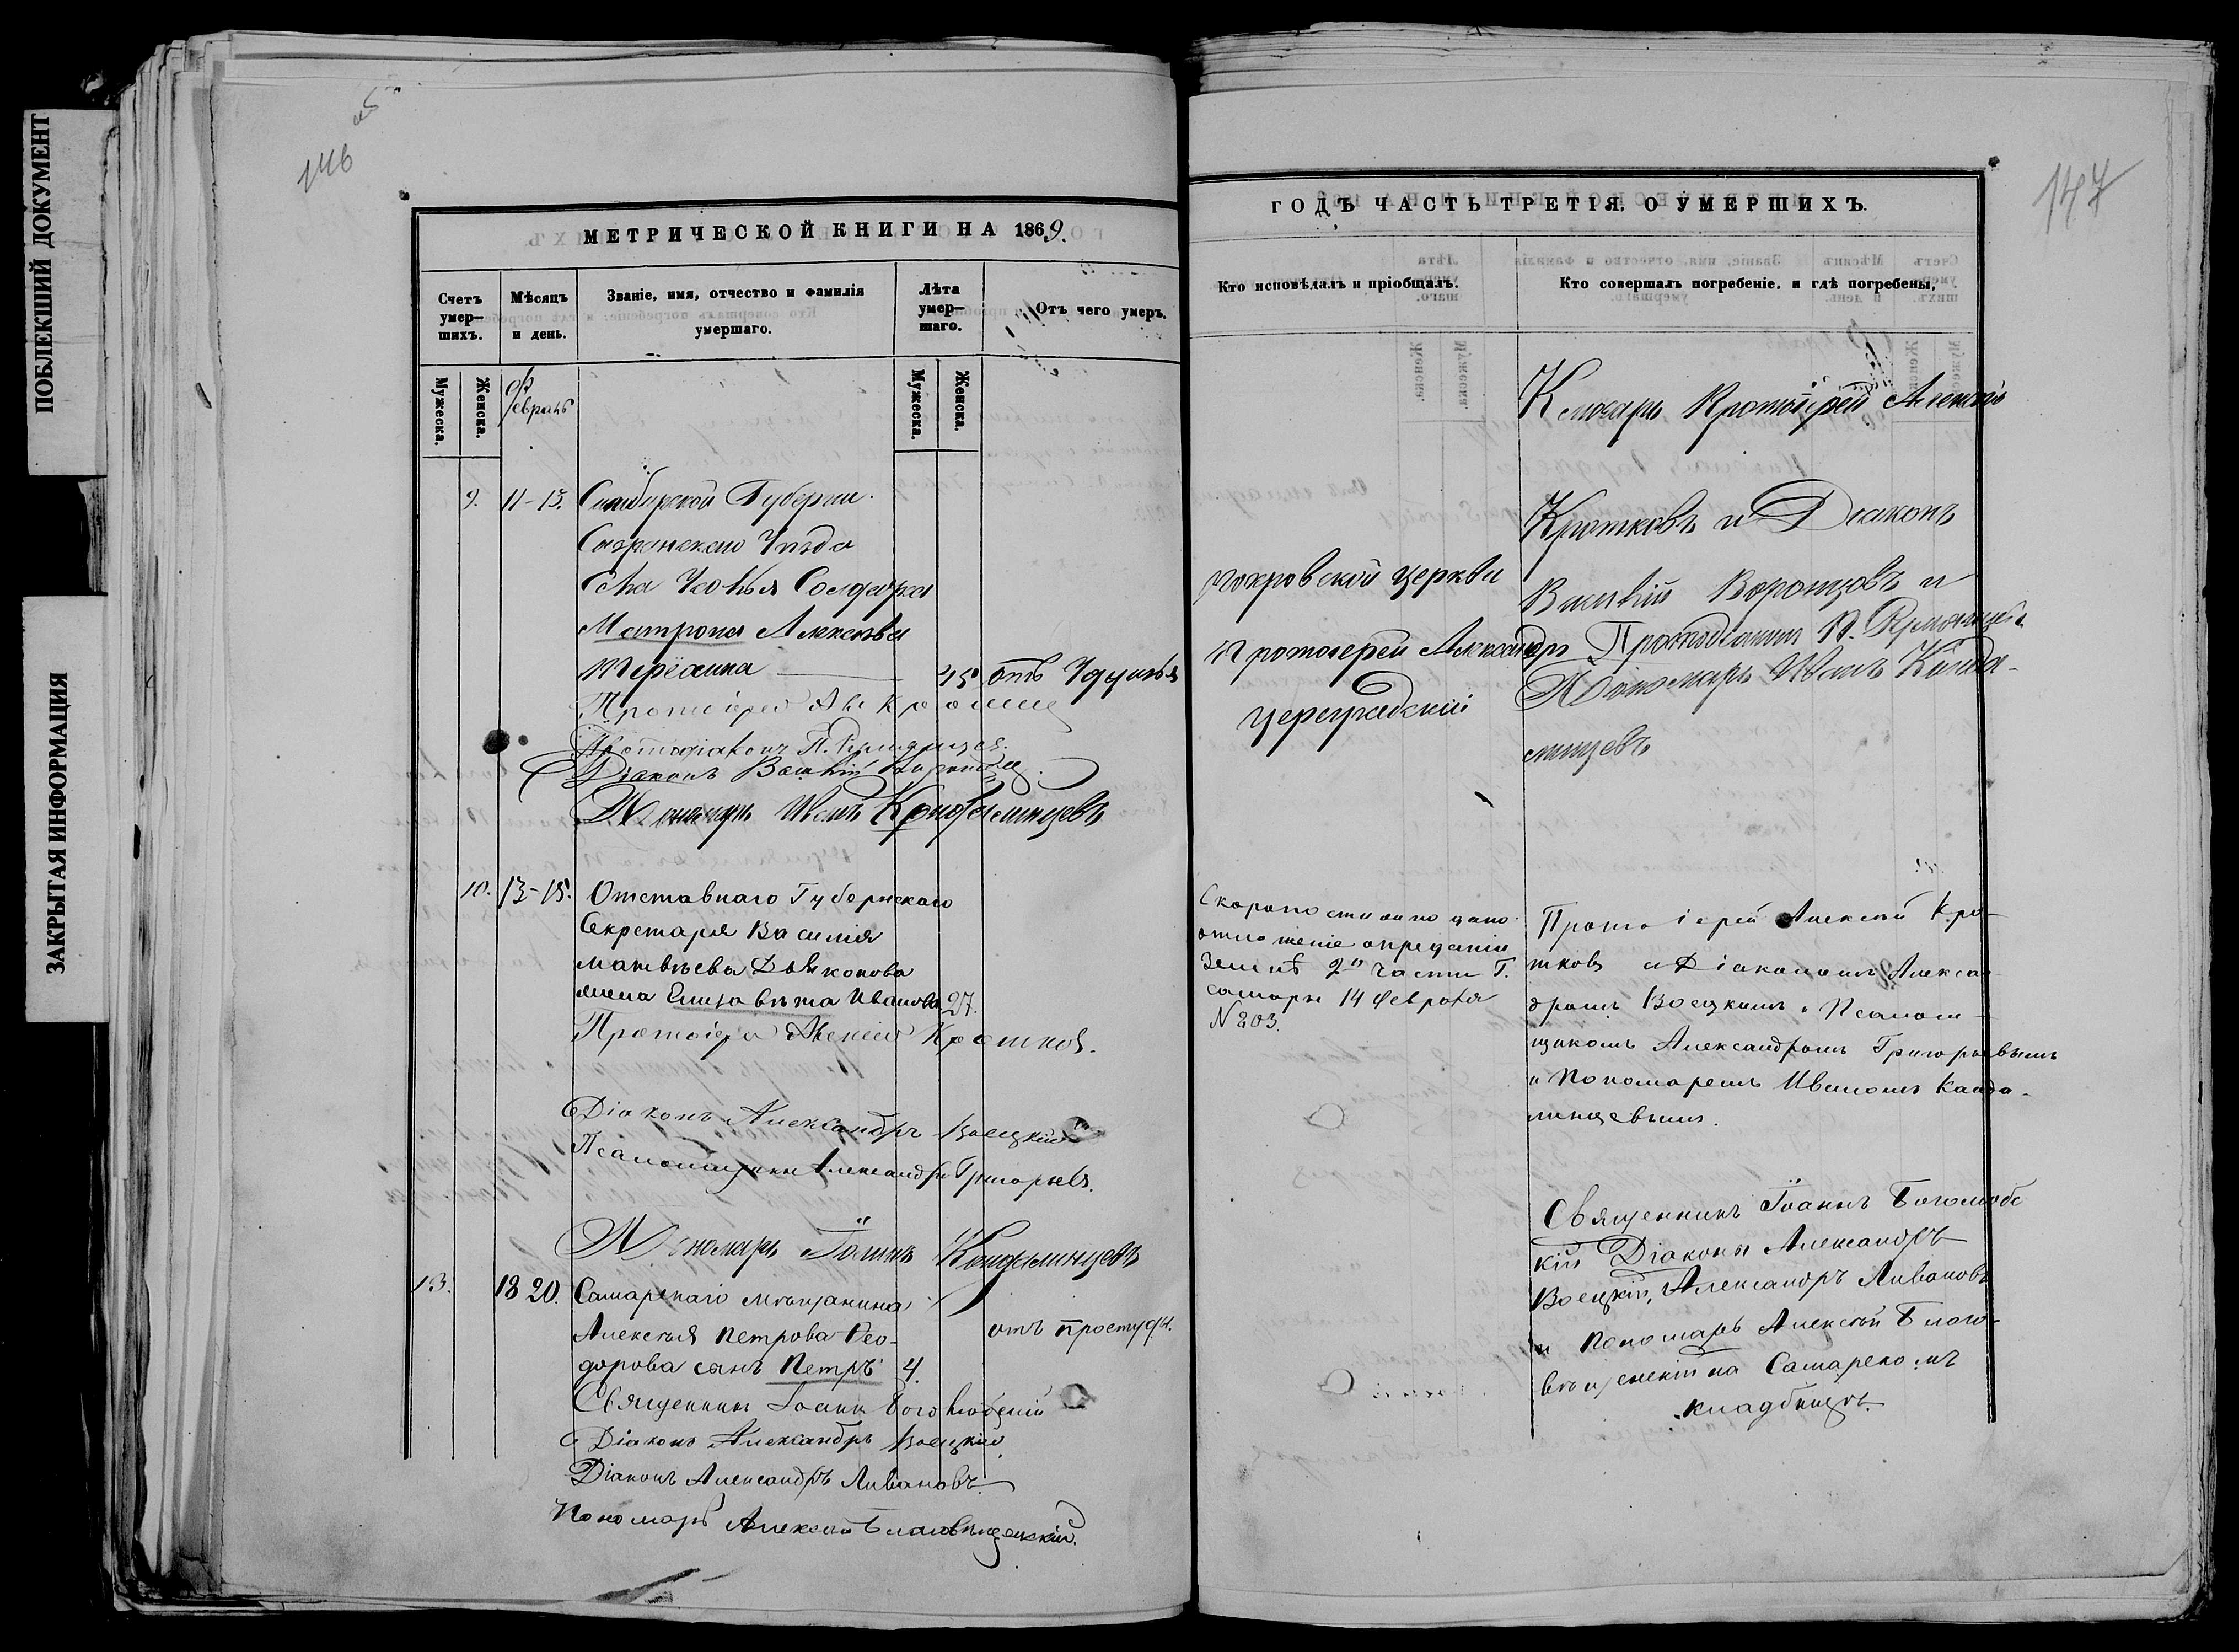 ПОБЛЕКШИЙ ДОКУМЕНТ
ЗАКРЫТАЯ ИНФОРМАЦИЯ
146
МЕТРИЧЕСКОЙ КНИГИ НА 1869.
Счетъ умер-шихъ.
Мѣсяцъ и день.
Званіе, имя, отчество и фамилія умершаго.
Лѣта умер-шаго.
Отъ чего умеръ.
Мужеска.
Женска.
Февраль
Мужеска.
Женска.
9. 11-13. Симбирской Губерніи
Сызранскаго Уѣзда
Села Солдатка
Матрона Алексѣева
45 отъ Удушья
Протоіерей Ал. Кротков
Протодіаконъ П.
Діаконъ Василій Воронцов
Пономарь Иванъ Кондалинцевъ
10. 13-15. Отставнаго Губернскаго
Секретаря Василія
Матвѣева Дьяконова
жена Елизавѣта Иванова 27.
Протоіерей Алексій Кротков.
Діаконъ Александръ Воецкій
Псаломщикъ Александръ Григорьевъ.
Пономарь Іоаннъ Кондалинцевъ
13. 18 20. Самарскаго мѣщанина
Алексѣя Петрова Ѳео-
отъ простуды.
дорова сынъ Петръ 4.
Священникъ Іоаннъ Боголюбскій
Діаконъ Александръ Воецкій
Діаконъ Александръ Ливановъ
Пономарь Алексѣй Благовѣщенскій.
147
ГОДЪ ЧАСТЬ ТРЕТІЯ. О УМЕРШИХЪ.
Кто исповѣдалъ и пріобщалъ.
Кто совершалъ погребеніе, и гдѣ погребены.
Ключарь Протоіерей Алексій
Кротковъ и Діаконъ
Покровской церкви
Василій Воронцовъ и
Протоіерей Александръ
Протодіаконъ П.
Цареградскій
Пономарь Иванъ Конда-
линцевъ
Скоропостижно дано
отношеніе о преданіи
землѣ 2й части Г.
Самары 14 Февраля
№ 203.
Протоіерей Алексій Кро-
тковъ и Діакономъ Алексан
дромъ Воецкимъ и Псалом-
щикомъ Александромъ Григорьевымъ
и Пономаремъ Иваномъ Конда-
линцевымъ.
Священникъ Іоаннъ Боголюбс
кій Діаконы Александръ
Воецкій, Александръ Ливановъ
и Пономарь Алексѣй Благо-
вѣщенскій на Самарскомъ
кладбищѣ.